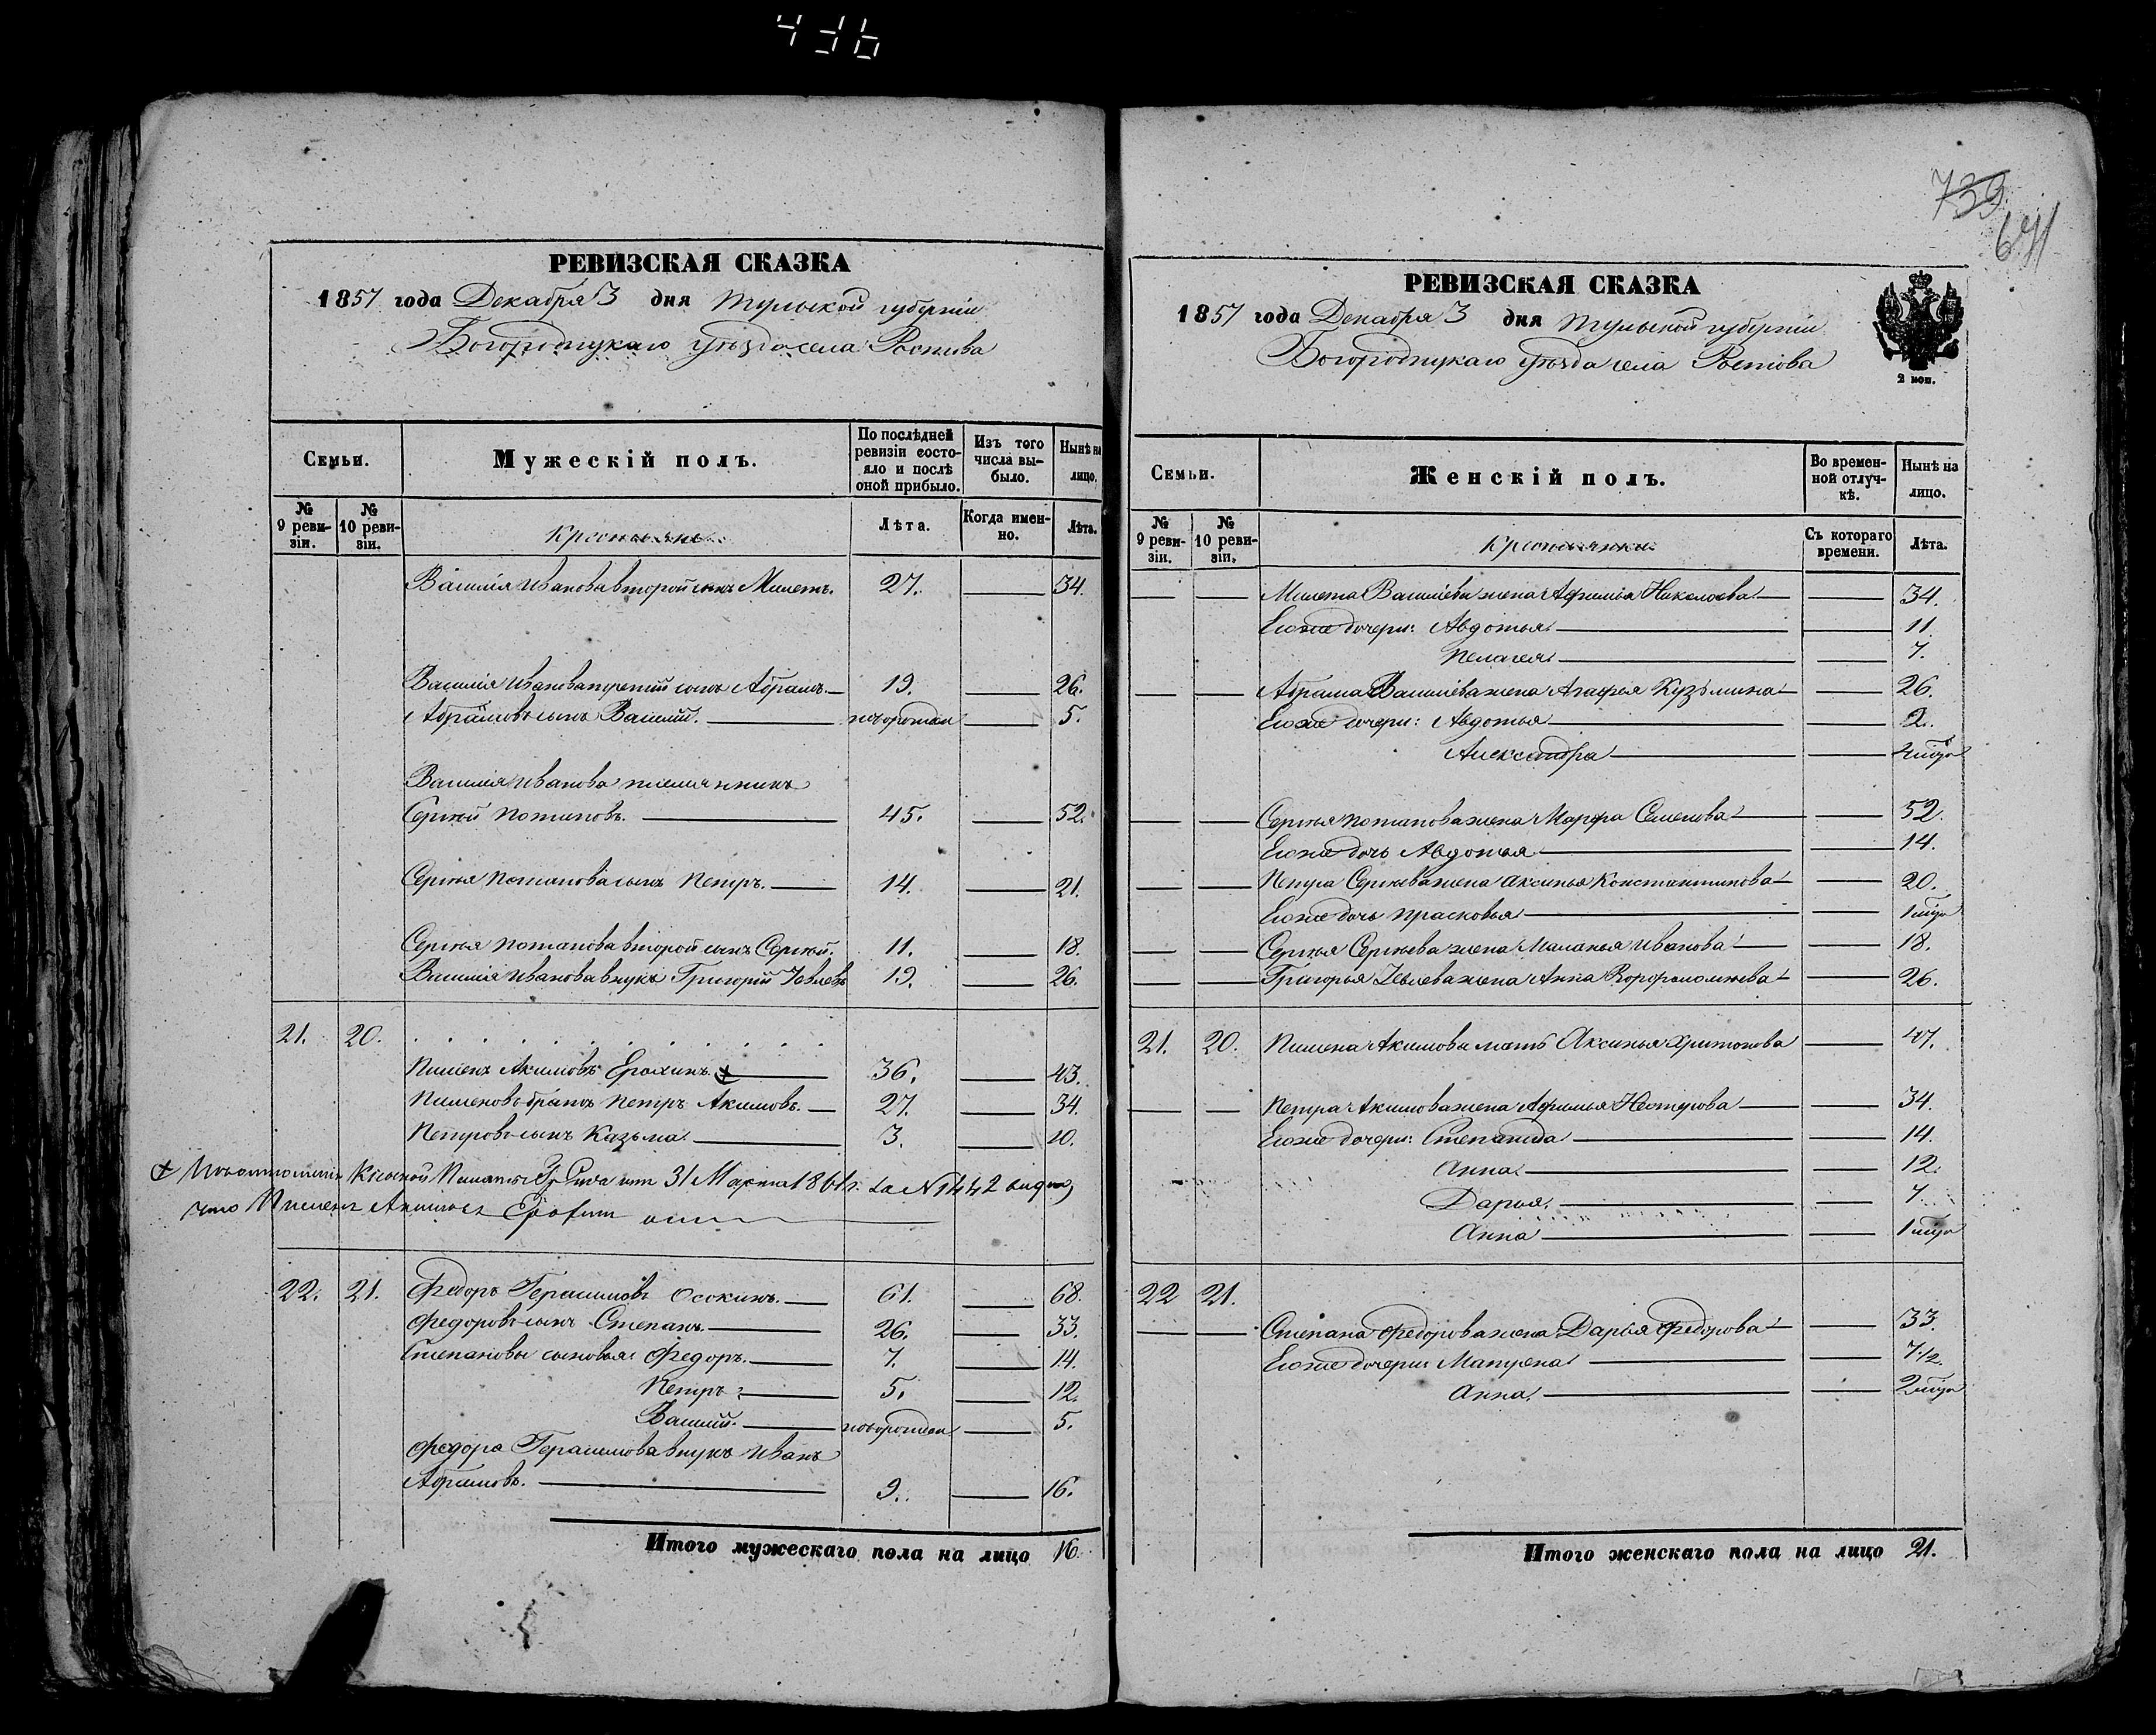 436
739
671
РЕВИЗСКАЯ СКАЗКА
1857 года Декабря 3 дня Тульской губерніи
Богородицкаго уѣзда села Ростова
Семьи.
Мужескій полъ.
По послѣдней ревизіи состояло и послѣ оной прибыло.
Изъ того числа выбыло.
Нынѣ на лицо.
№ 9 ревизіи.
№ 10 ревизіи.
Крестьяне
Лѣта.
Когда именно.
Лѣта.
Василія Иванова второй сынъ Милетъ. 27. 34.
Василія Иванова третій сынъ Абрамъ. 19. 26.
Абрамовъ сынъ Василій. новорожден 5.
Василія Иванова племянникъ
Сергѣй Потаповъ. 45. 52.
Сергѣя Потапова сынъ Петръ. 14. 21.
Сергѣя Потапова второй сынъ Сергѣй. 11. 18.
Василія Иванова внукъ Григорій 19. 26.
21. 20.
Пименъ Акимовъ Ерохинъ. 36. 43.
Пименовъ братъ Петръ Акимовъ. 27. 34.
Петровъ сынъ Казьма. 3. 10.
Казеной Палаты 31 Марта 1861 г. за № 1442
что Пименъ Акимовъ
22. 21. Федоръ Герасимовъ Осокинъ. 61. 68.
Федоровъ сынъ Степанъ. 26. 33.
Степановы сыновья Федоръ. 7. 14.
Петръ 5. 12.
Василій. новорожден 5.
Федора Герасимова внукъ Иванъ
Абрамовъ. 9. 16.
Итого мужескаго пола на лицо 16.
РЕВИЗСКАЯ СКАЗКА
1857 года Декабря 3 дня Тульской губерніи
Богородицкаго уѣзда села Ростова
2 коп.
Семьи.
Женскій полъ.
Во временной отлучкѣ.
Нынѣ на лицо.
№ 9 ревизіи.
№ 10 ревизіи.
Крестьянки
Съ котораго времени.
Лѣта.
Милета Васильева жена Афимья Николаева 34.
Его же дочери: Авдотья 11.
Пелагея 7.
Абрама Васильева жена Агафея Кузьмина 26.
Его же дочери: Авдотья 2.
Александра 4 мѣся
Сергѣя Потапова жена Марфа Семенова 52.
Его же дочь Авдотья 14.
Петра Сергѣева жена Аксинья Константинова 20.
Его же дочь Прасковья 1 мѣся
Сергѣя Сергѣева жена Маланья Иванова 18.
Григорья жена Анна Ворфоломѣева 26.
21. 20. Пимена Акимова мать Аксинья Хритонова 47.
Петра Акимова жена Афимья Нестерова 34.
Его же дочери: Степанида 14.
Анна 12.
Дарья 7.
Анна 1 мѣся
22 21.
Степана Федорова жена Дарья Федорова 33.
Его же дочери: Матрена 7 1/2.
Анна 2 мѣся
Итого женскаго пола на лицо 21.